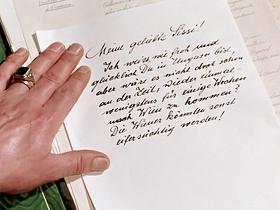 Meine geliebte Sissi!
Ich weiss, wie froh und
glücklich Du in Ungarn bist,
aber wäre es nicht doch schon
an der Zeit, wieder einmal
wenigstens für einige Wochen
nach Wien zu kommen?
Die Wiener könnten sonst
eifersüchtig werden!